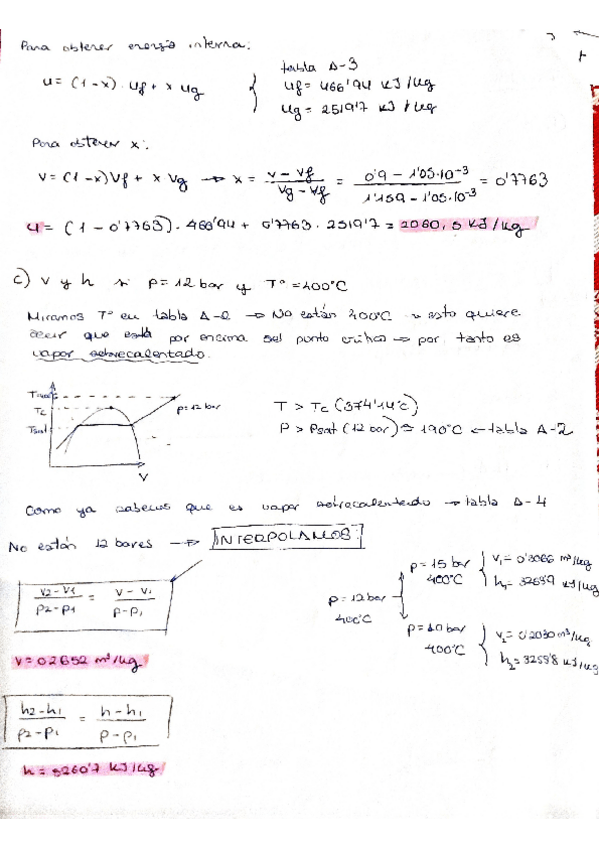 Para obtener energía interna:
tabla A-3
u = (1-x)·uf + x ug
uf = 466'94 KJ/kg
ug = 2519'7 KJ/kg
Para obtener x:
v = (1-x)vf + x vg → x = (v - vf)/(vg - vf) = (0'9 - 1'05·10⁻³)/(1'159 - 1'05·10⁻³) = 0'7763
u = (1 - 0'7763)·466'94 + 0'7763·2519'7 = 2060,5 KJ/kg
c) v y h si p = 12 bar y Tº = 400ºC
Miramos Tº en tabla A-2 → No están 400ºC → esto quiere
decir que está por encima del punto crítico → por tanto es
vapor sobrecalentado.
Tc
p = 12 bar
Tsat
v
T > Tc (374'14ºC)
P > Psat (12 bar) ≈ 190ºC ← tabla A-2
Como ya sabemos que es vapor sobrecalentado → tabla A-4
No están 12 bares → INTERPOLAMOS
p = 12 bar
400ºC
p = 15 bar
400ºC
h₁ = KJ/kg
p = 10 bar
400ºC
h₂ = KJ/kg
(v2 - v1)/(p2 - p1) = (v - v1)/(p - p1)
v = 0'2652 m³/kg
(h2 - h1)/(p2 - p1) = (h - h1)/(p - p1)
h = 3260'7 KJ/kg